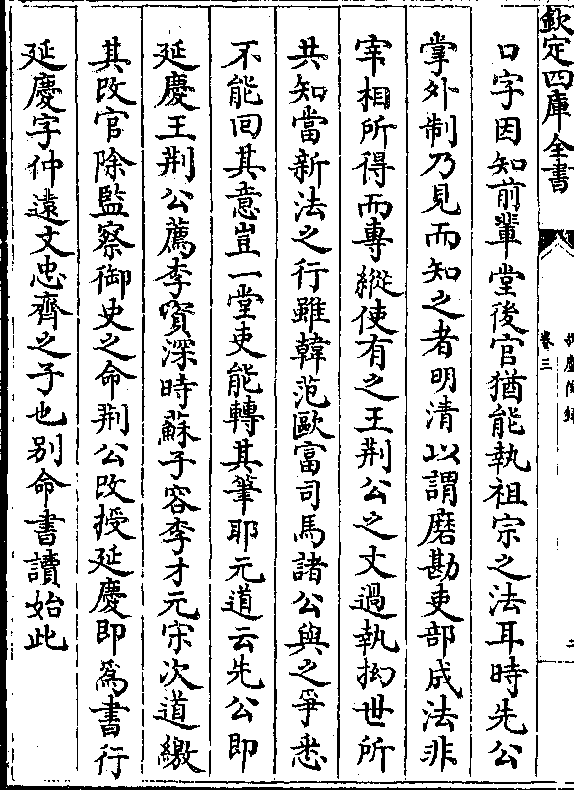 欽定四庫全書
卷三
口字因知前輩堂後官猶能執祖宗之法耳時先公
掌外制乃見而知之者明清以謂磨勘吏部成法非
宰相所得而專縱使有之王荆公之丈過執拗世所
共知當新法之行雖韓范歐富司馬諸公與之爭悉
不能回其意豈一堂吏能轉其筆耶元道云先公即
延慶王荆公薦李資深時蘇子容李才元宋次道繳
其改官除監察御史之命荆公改授延慶即為書行
延慶字仲遠文忠齊之子也别命書讀始此